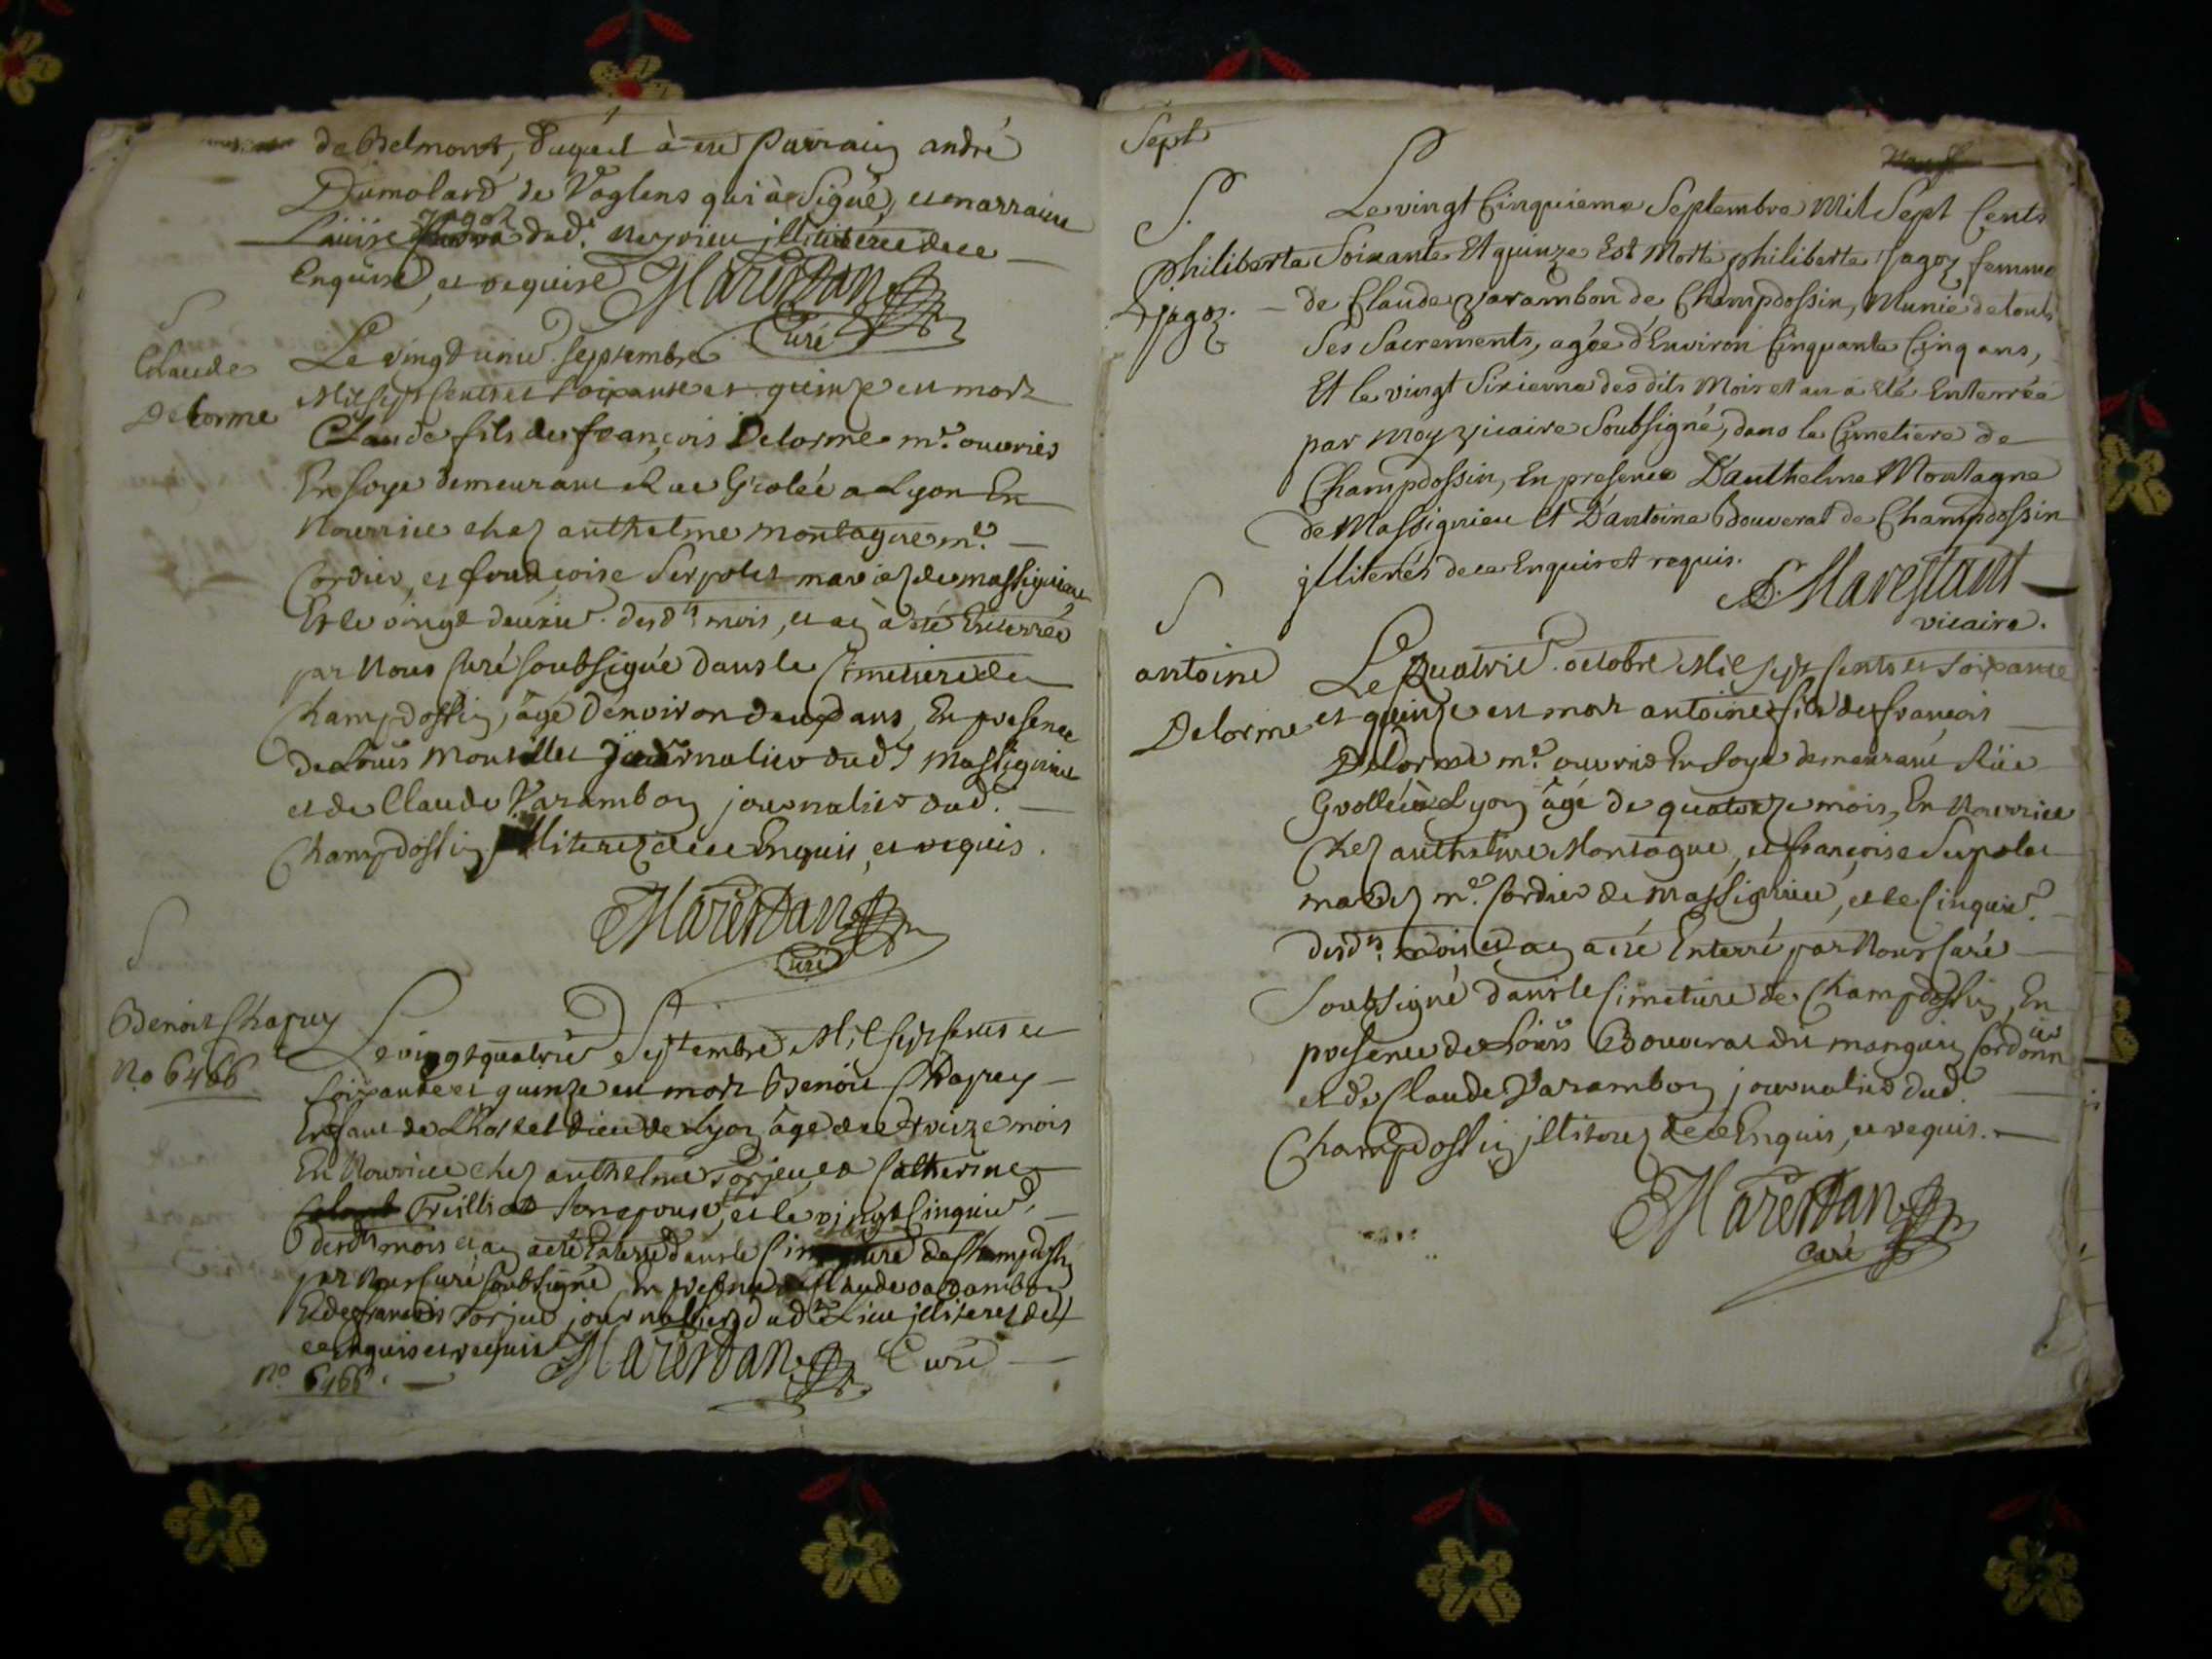 de Belmont, duquel à été parrain andré
Dumolard de Voglens qui à signé, et marraine
Loüise Jagoz dud.t illiterée de ce
Enquise, et requise Marestan
Curé
S
Claude
Delorme
Le vingt unie. septembre
Mil sept cents et soixante et quinze est mort
Claude fils de françois Delorme m.e ouvrier
En soye demeurant Rue Grolée a Lyon En
Nourrice chez anthelme montagne m.e
Cordier, et françoise Serpolet mariez de massignieu
Et le vingt deuxie. desd.ts mois, et an à eté Enterré
par Nous Curé soubsigné dans le Cimetiere de
Champdossin, âgé d'environ deux ans, En presence
de Louis journalier dud.t Massignieu
et de Claude Varambon journalier dud.
Champdossin illiterez de ce Enquis, et requis.
Marestan
Curé
S
Benoit Chapuy
No 6466
Le vingt quatrie Septembre Mil sept cents et
soixante et quinze est mort Benoit Chapuy
Enfant de L'hostel dieu de Lyon âgé de treize mois
En Nourrice chez anthelme Torjeu, et Catherine
Trilliat son epouse, et le vingt cinquie.
desd.ts mois et an a eté Enterré dans le Cimetiere de Champdossin
par Nous Curé soubsigné, En presence de Claude Varambon
Et de françois Torjeu journaliers dud.t Lieu illiterez de
ce Enquis et requis Marestan Curé
No. 6466.
Sept
S.
philiberte
Jagoz.
Le vingt Cinquieme Septembre Mil Sept Cents
Soixante Et quinze Est Morte philiberte Jagoz femme
de Claude Varambon de Champdossin, Munie de touts
Ses Sacrements, agée d'Environ Cinquante Cinq ans,
Et le vingt Sixieme des dits Mois et an a eté Enterrée
par moy vicaire Soubsigné, dans le Cimetiere de
Champdossin, En presence D'anthelme Montagne
de Massignieu Et D'antoine Bouverat de Champdossin
illiterés de ce Enquis et requis.
Marestant
vicaire.
S
antoine
Delorme
Le Quatrie. octobre Mil sept cents et soixante
et quinze est mort antoine fils de françois
Delorme m.e ouvrier En soye demeurant Rüe
Grollée à Lyon âgé de quatorze mois, En Nourrice
Chez anthelme Montagne, et françoise Serpolet
mariez m.e Cordier de Massignieu, et le Cinquie.
desd.ts mois et an a eté Enterré par Nous Curé
Soubsigné dans le Cimetiere de Champdossin, En
presence de Loüis Bouverat dit manguin Cordonnier
et de Claude Varambon journalier dud.
Champdossin illiterez de ce Enquis, et requis.
Marestan
Curé